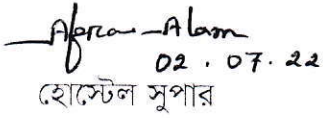 Afroza Alam
02.07.22
হোস্টেল সুপার